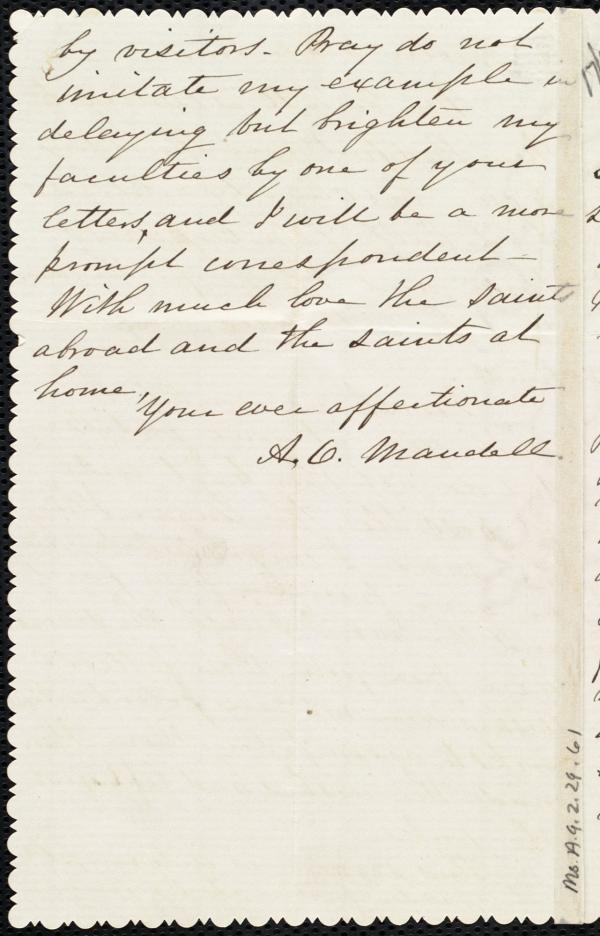 by visitors - Pray do not
imitate my example in
delaying but brighten my
faculties by one of your
letters, and I will be a more
prompt correspondent -
With much love the saints
abroad and the saints at
home,
Your ever affectionate
A. O. Mandell.
Ms. A. 9. 2. 29. 61